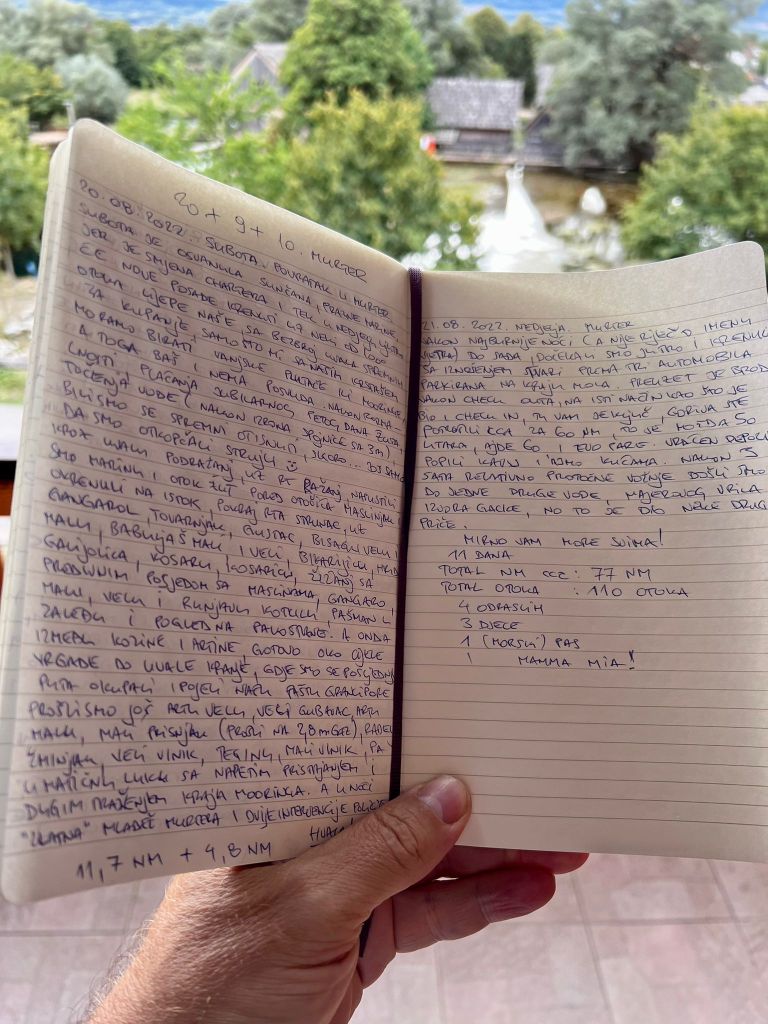 20 + 9 + 10. MURTER
20.08.2022. SUBOTA. POVRATAK U MURTER
SUBOTA JE OSVANULA SUNČANA, PRAZNE MARINE,
JER JE SMJENA CHARTERA I TEK U NEDJELJU UJUTRO
ĆE NOVE POSADE KRENUTI UZ NEKI OD 1000
OTOKA LIJEPE NAŠE SA BEZBROJ UVALA SPREMNIH
ZA KUPANJE, SAMO ŠTO MI SA NAŠIM KRSTAŠEM
MORAMO BIRATI VANJSKE PLUTAČE ILI MOORINGE
A TOGA BAŠ I NEMA POSVUDA. NAKON
PLAĆANJA JUBILARNOG, PETOG DANA
TOČENJA VODE (NAKON SPOJNICE SA 3/4)
BILI SMO SE SPREMNI OTISNUTI, SKORO... JOŠ SAMO
DA SMO OTKOPČALI STRUJU
KROZ UVALU PODRAŽANJ, UZ RT RAŽANJ, NAPUSTILI
SMO MARINU I OTOK ŽUT PORED OTOČIĆA MASLINJAK I
OKRENULI NA ISTOK, POKRAJ RTA STRUNAC, UZ
GANGAROL, TOVARNJAK, GUSTAC, BISAGU VELU I
MALU, BABULJAŠ MALI I VELI, BIKARIJICU,
GALIJOLICA, KOŠARU, KOŠARICU, ŽIŽANJ SA
PREDIVNIM POSJEDOM SA MASLINAMA, GANGARO I
MALU, VELU I RUNJAVU KOTULU, PAŠMAN U
ZALEĐU I POGLED NA PAKOŠTANE. A ONDA
IZMEĐU KOZINE I ARTINE, GOTOVO OKO CIJELE
VRGADE DO UVALE KRANJE, GDJE SMO SE POSLJEDNJI
PUTA OKUPALI I POJELI NAŠU PAŠTU GRANCIPORE
PROŠLI SMO JOŠ ARTU VELU, VELI GUBAVAC, ARTU
MALU, MALI PRISNJAK (PROŠLI NA 2,8 METRA), RADELJ
ŽMINJAK, VELI VINIK, TEGINU, MALI VINIK, PA
U MATIČNU LUKU SA NAPETIM PRISTAJANJEM I
DUGIM TRAŽENJEM KRAJA MOORINGA. A U NOĆI
"ZLATNA" MLADEŽ MURTERA I DVIJE INTERVENCIJE POLICIJE
HVALA!
11,7 NM + 4,8 NM
21.08.2022. NEDJELJA. MURTER
NAKON NAJBURNIJE NOĆI (A NIJE RIJEČ O IMENU
VJETRA) DO SADA, DOČEKALI SMO JUTRO I KRENULI
SA IZNOŠENJEM STVARI PREMA TRI AUTOMOBILA
PARKIRANA NA KRAJU MOLA. PREUZET JE BROD
NAKON CHECK OUTA, NA ISTI NAČIN KAO ŠTO JE
BIO CHECK IN, TU VAM JE KLJUČ, GORIVA STE
POTROŠILI CCA ZA 60 NM, TO JE MOŽDA 50
LITARA, AJDE 60 I EVO PARE. VRAĆEN DEPOZIT
POPILI KAVU I IDEMO KUĆAMA. NAKON 3
SATA RELATIVNO PROTOČNE VOŽNJE DOŠLI SMO
DO JEDNE DRUGE VODE, MAJEROVOG VRILA
IZVORA GACKE, NO TO JE DIO NEKE DRUGE
PRIČE.
MIRNO VAM MORE SVIMA!
11 DANA
TOTAL NM CCA: 77 NM
TOTAL OTOKA : 110 OTOKA
4 ODRASLIH
3 DJECE
1 (MORSKI) PAS
I MAMMA MIA!